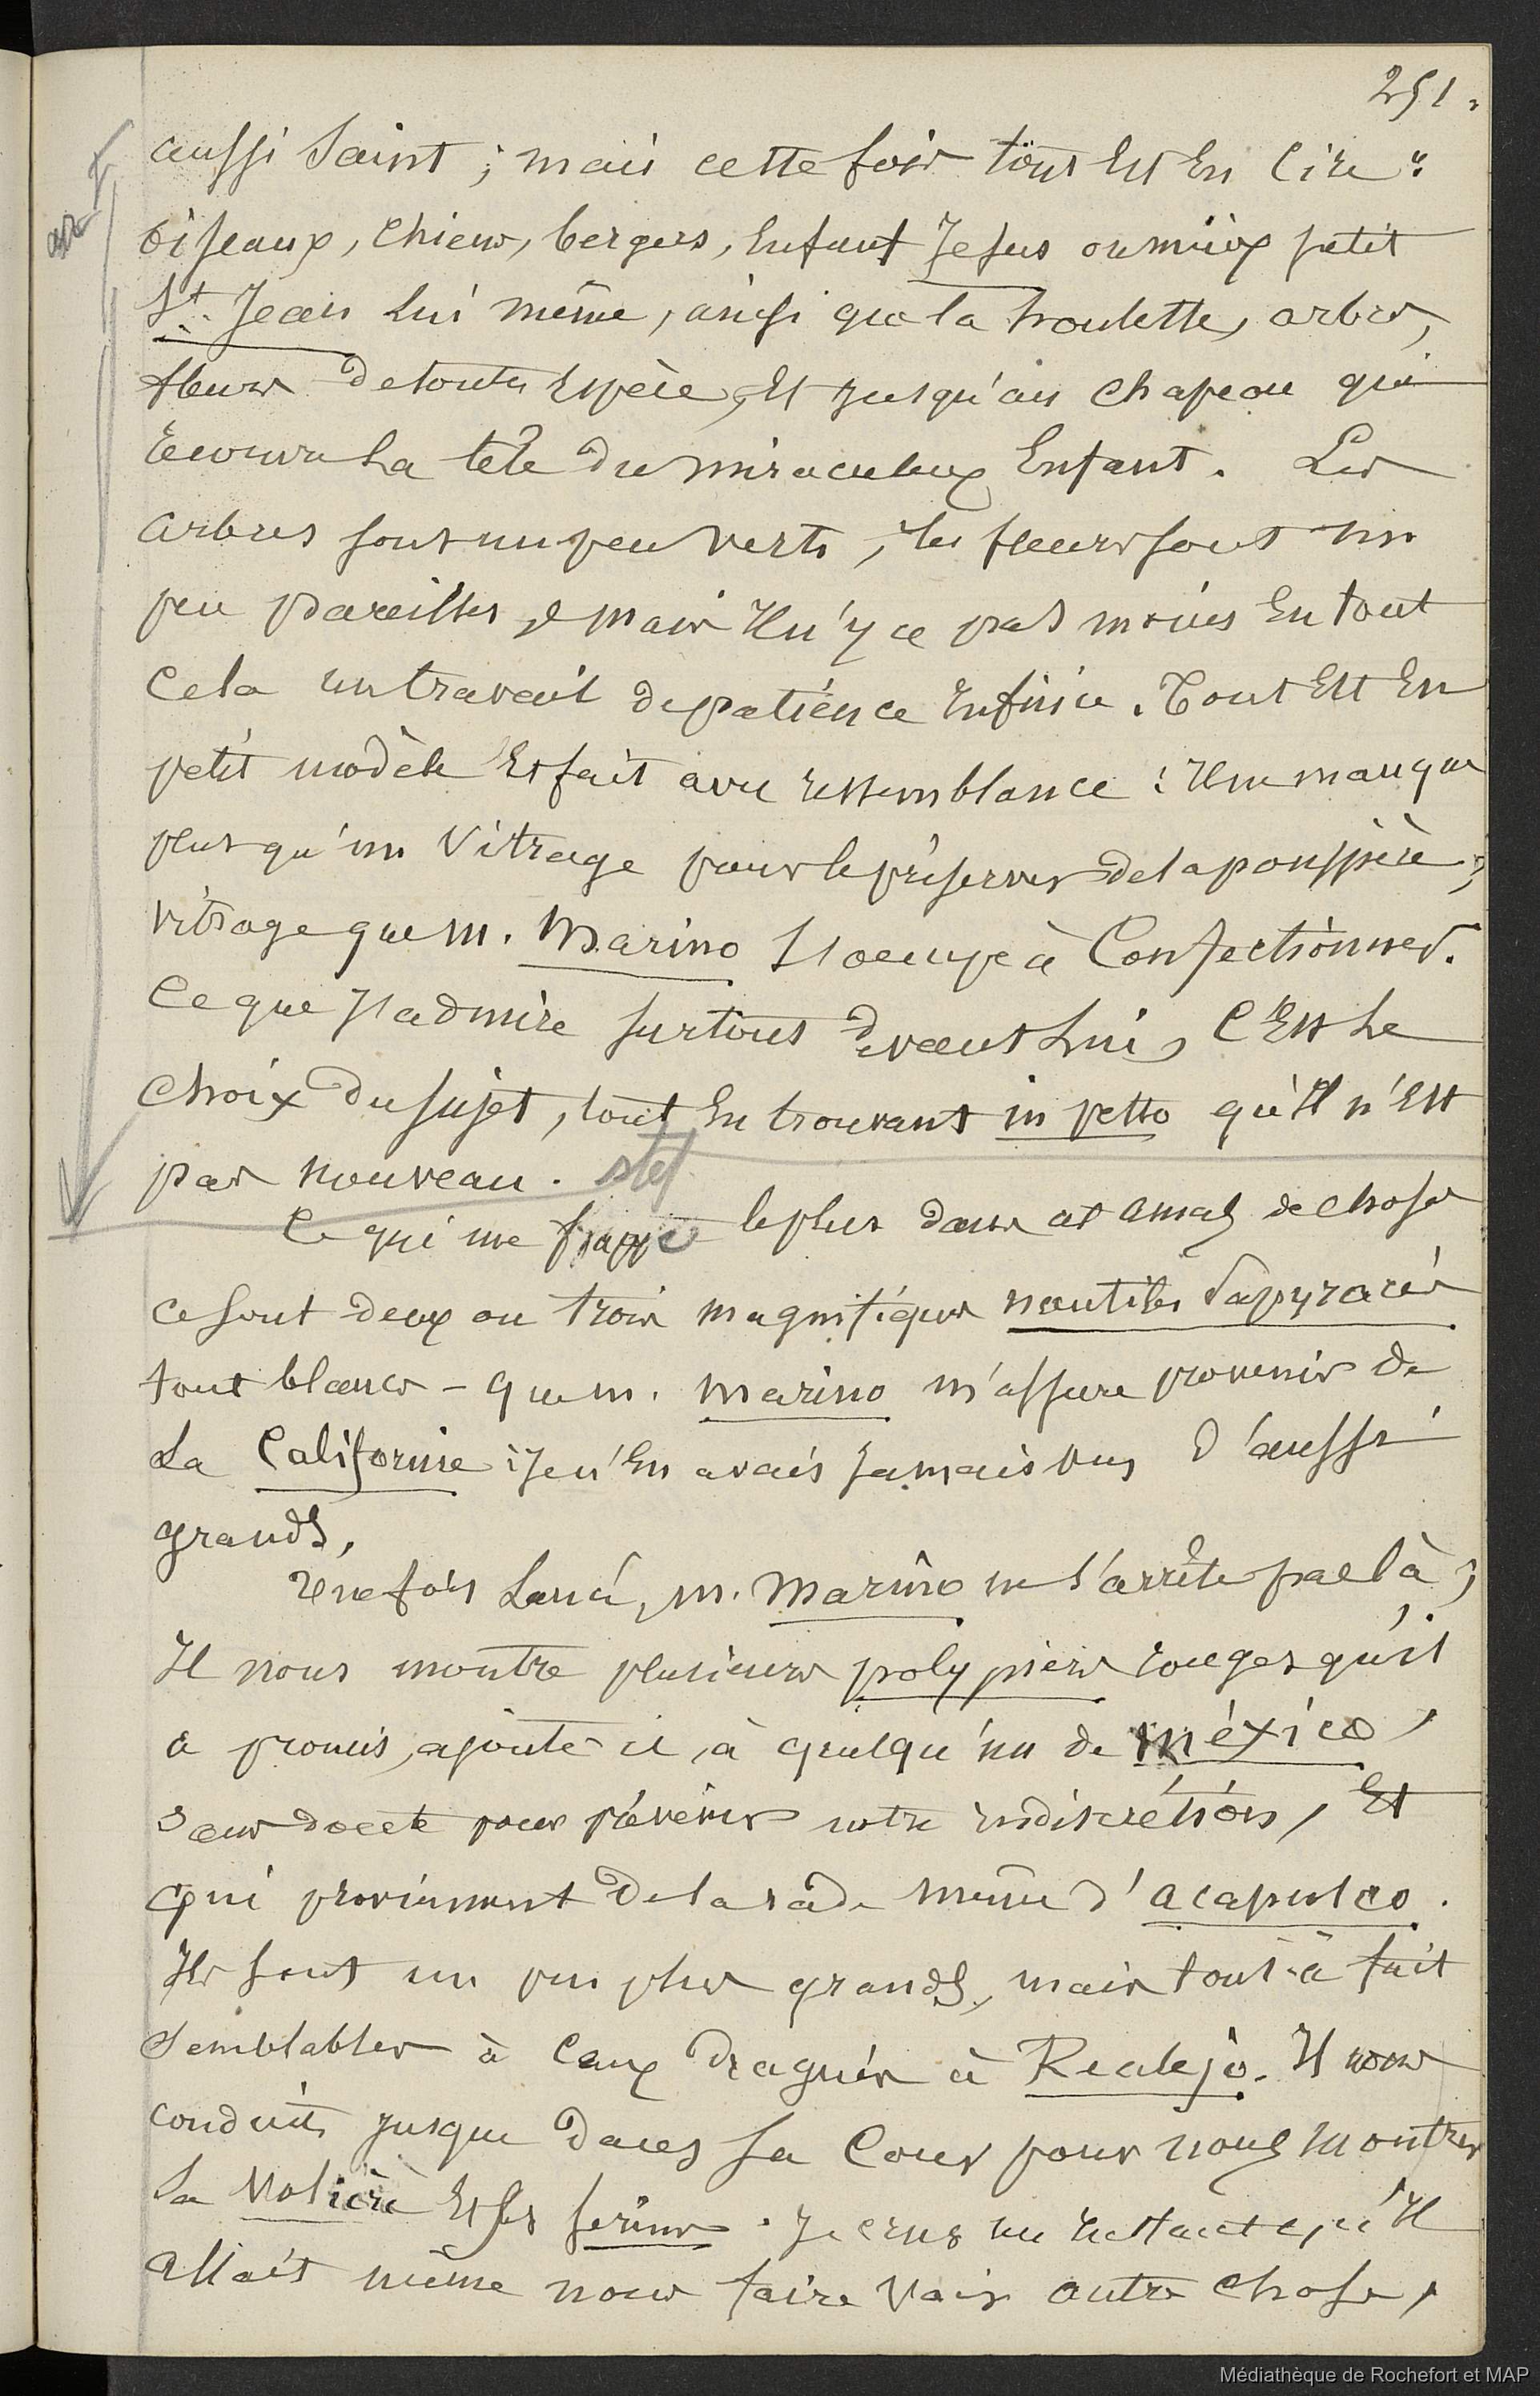 251.
aussi Saint ; mais cette fois tout est en cire :
oiseaux, chiens, bergers, enfant Jesus ou mieux petit
St. Jean lui même, ainsi que la houlette, arbres,
fleurs de toutes espèce, et jusqu'au chapeau qui
recouvre la tête du miraculeux enfant. Les
arbres sont un peu verts, les fleurs sont un
peu pareilles, mais il n'y a pas moins en tout
cela un travail de patience infinie. Tout est en
petit modèle et fait avec ressemblance : il ne manque
plus qu'un vitrage pour le préserver de la poussière ;
vitrage que m. Marino s'occupe à confectionner.
Ce que j'admire surtout devant lui, c'est le
choix du sujet, tout en trouvant in petto qu'il n'est
pas nouveau. stet
Ce qui me frappe le plus dans cet amas de choses
ce sont deux ou trois magnifiques nautiles papyracés
tout blancs - que m. Marino m'assure provenir de
la Californie ; je n'en avais jamais vus d'aussi
grands.
Une fois lancé, m. Marino ne s'arrête pas là ;
Il nous montre plusieurs polypiers rouges qu'il
a promis, ajoute-il, à quelqu'un de méxico,
sans doute pour prévenir notre indiscrétion, et
qui proviennent de la rade même d'acapulco.
Ils sont un peu plus grands, mais tout-à-fait
semblables à ceux dragués à Realejo. Il nous
conduit jusque dans sa cour pour nous montrer
sa volière et ses serins. Je crus un instant qu'il
allait même nous faire voir autre chose,
Médiathèque de Rochefort et MAP